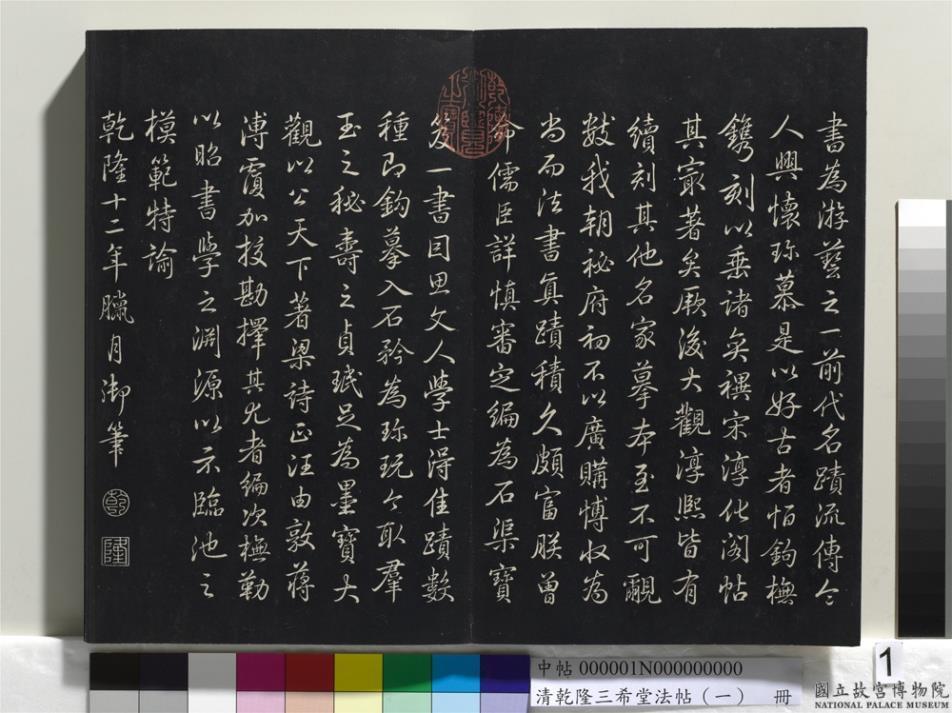 書為游藝之一前代名蹟流傳令
人興懷珍慕是以好古者恆鉤橅
鐫刻以垂諸奕禩宋淳化閣帖
其最著矣厥後大觀淳熙皆有
續刻其他名家摹本至不可覼
數我朝祕府初不以廣購博收為
尚而法書真蹟積久頗富朕曾
命儒臣詳慎審定編為石渠寶
笈一書因思文人學士得佳蹟數
種即鉤摹入石矜為珍玩今取羣
玉之秘壽之貞珉足為墨寶大
觀以公天下著梁詩正汪由敦蔣
溥覆加挍勘擇其尤者編次橅勒
以昭書學之淵源以示臨池之
模範特諭
乾隆十二年臘月御筆
乾
隆
乾隆御覽之寶
中帖 000001N000000000
清乾隆三希堂法帖（一） 冊
1
國立故宮博物院
NATIONAL PALACE MUSEUM